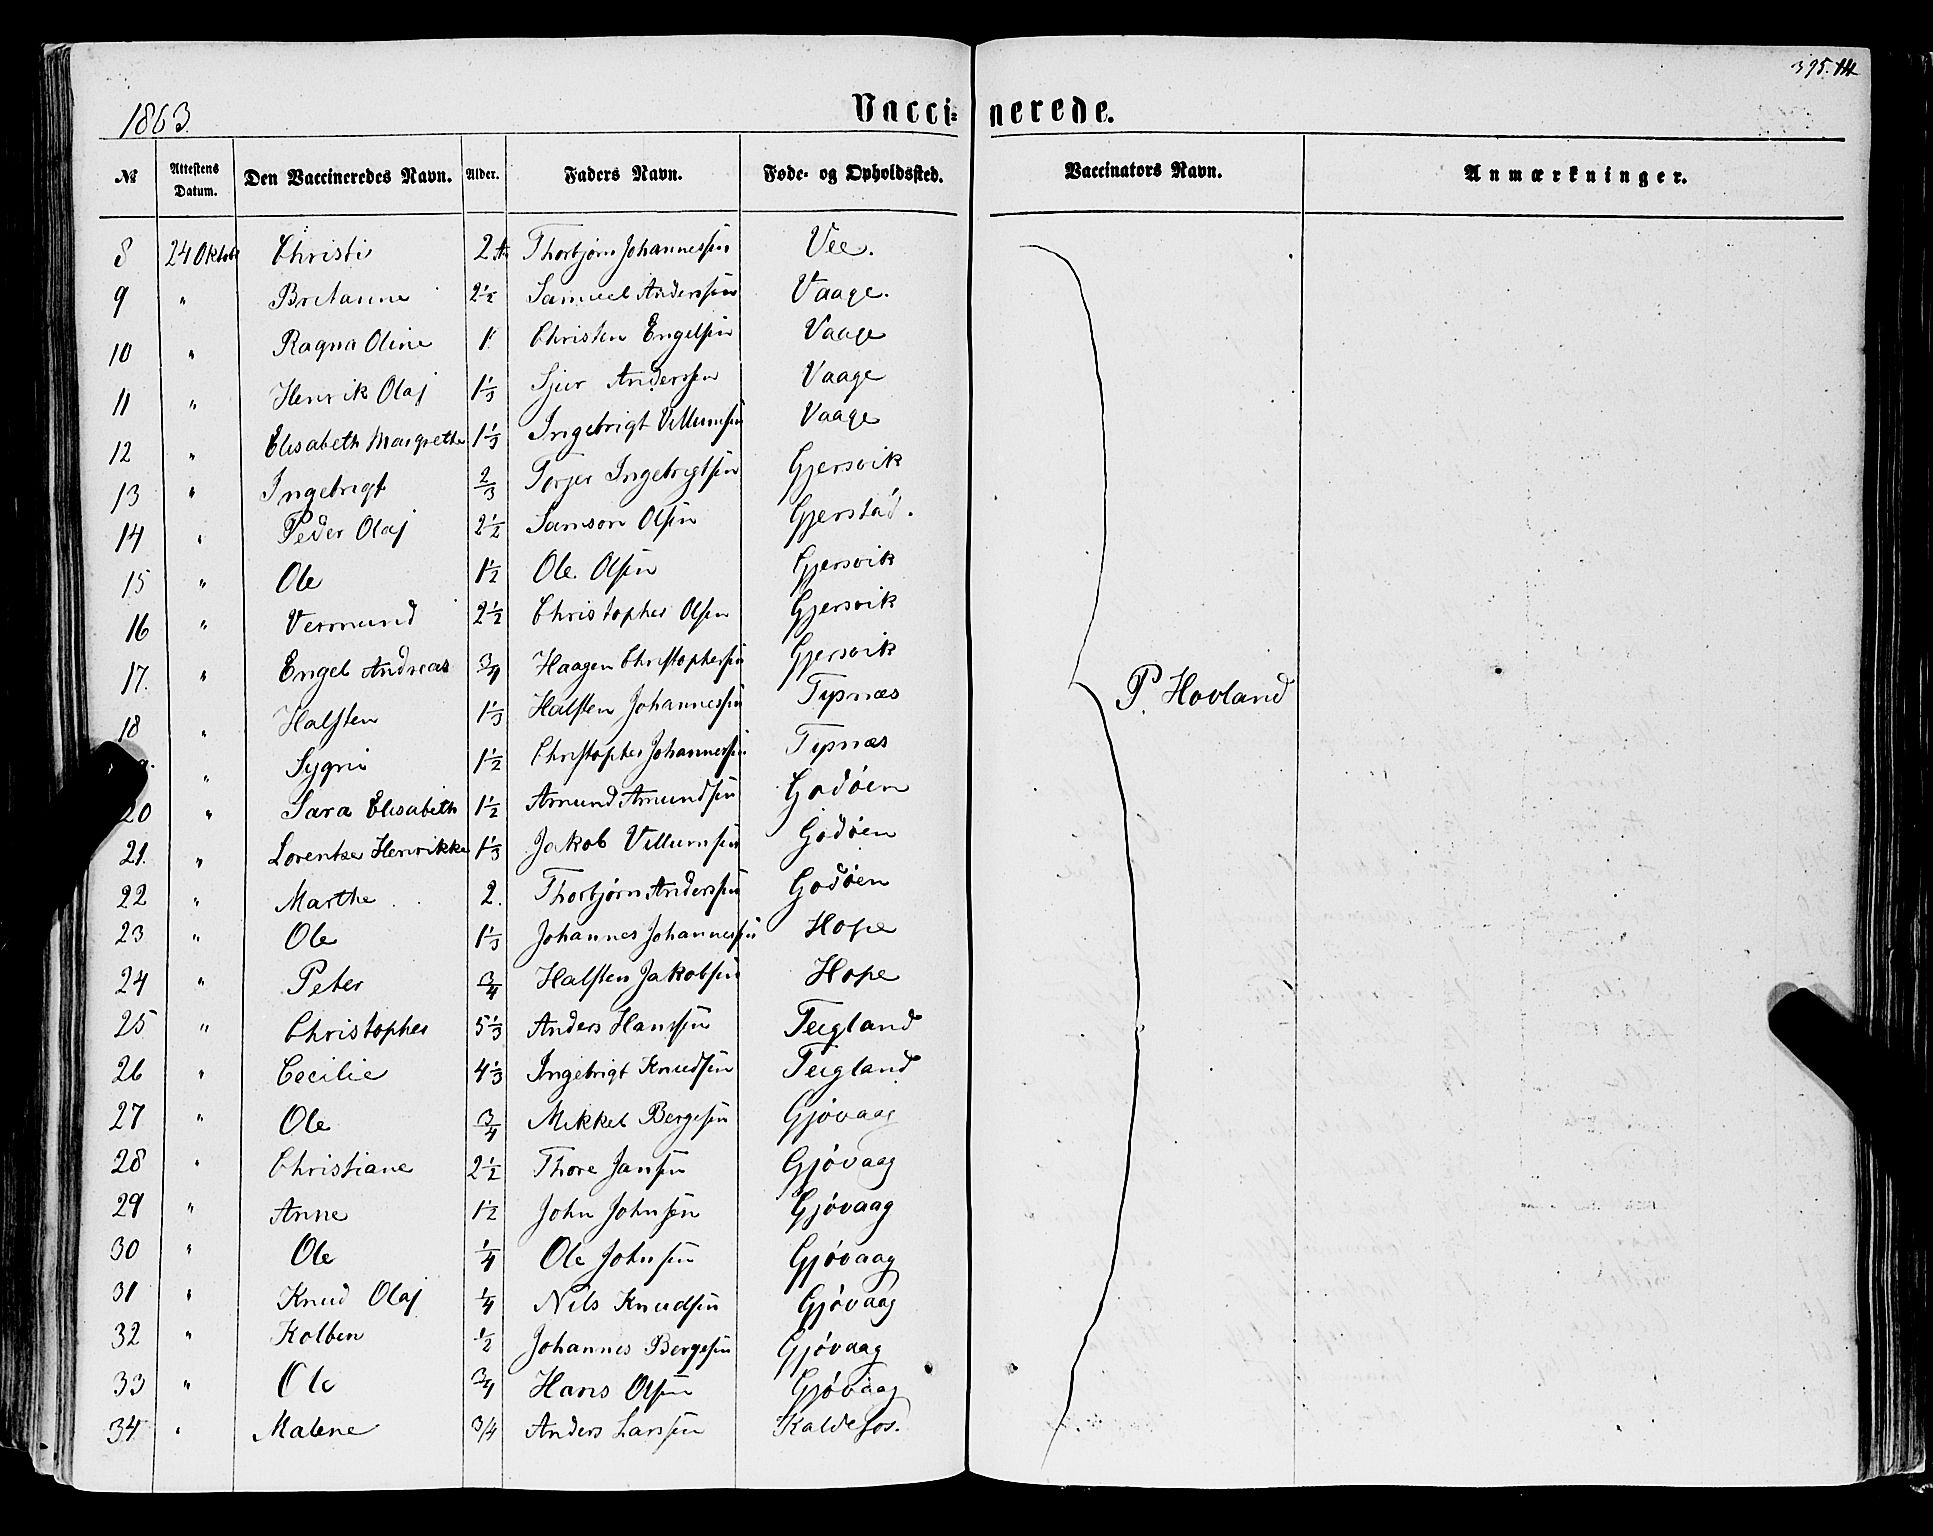 395.
1863.
Vacci- nerede.
№ Attestens Datum. Den Vaccineredes Navn. Alder. Faders Navn. Føde- og Opholdssted. Vaccinators Navn. Anmærkninger.
8 24 Oktob Christi 2 Thorbjørn Johannessen Vee.
9 " Britanne 2½ Samuel Anderssen Vaage.
10 " Ragna Oline 1 Christen Engelsen Vaage
11 " Henrik Olaj 1⅓ Sjur Anderssen Vaage
12 " Elisabeth Margrethe 1⅓ Ingebrigt Villumsen Vaage
13 " Ingebrigt ⅔ Torjer Ingebrigtsen Gjersvik
14 " Peder Olaj 2½ Samson Olsen Gjerstad.
15 " Ole 1½ Ole Olsen Gjersvik
16 " Vermund 2½ Christopher Olsen Gjersvik
17. " Engel Andreas ¾ Haagen Christophersen Gjersvik
18 " Halsten 1⅓ Halsten Johannessen Tysnæs
" Sygni 1½ Christopher Johannessen Tysnæs
20 " Sara Elisabeth 1½ Amund Amundsen Godøen
21. " Lorentze Henrikke 1⅓ Jakob Villumsen Godøen
22 " Marthe 2. Thorbjørn Anderssen Godøen
23 " Ole 1⅓ Johannes Johannessen Hope
24 " Peter ¾ Halsten Jakobsen Hope
25 " Christopher 5⅓ Anders Hanssen Teigland
26 " Cecilie 4⅓ Ingebrigt Knudsen Teigland
27 " Ole ¾ Mikkel Bergesen Gjøvaag
28 " Christiane 2½ Thore Jansen Gjøvaag
29 " Anne 1½ John Johnsen Gjøvaag
30 " Ole ¼ Ole Johnsen Gjøvaag
31 " Knud Olaj ¼ Nils Knudsen Gjøvaag
32 " Kolben ½ Johannes Bergesen Gjøvaag
33 " Ole ¾ Hans Olsen Gjøvaag
34 " Malene 3/4 Anders Larssen Kaldefos.
P. Hovland